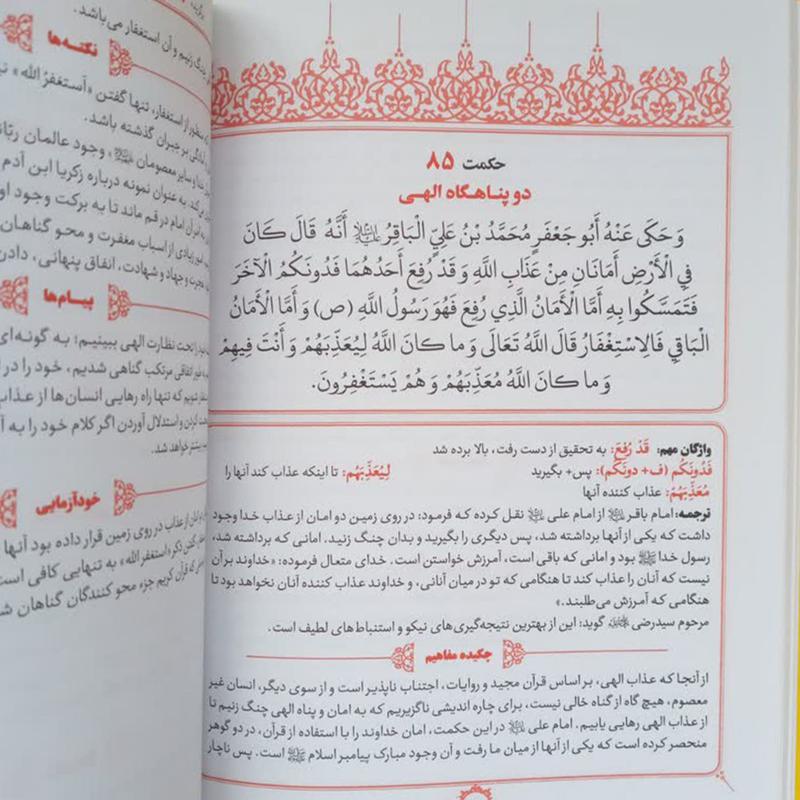 حکمت ۸۵
دو پناهگاه الهی
وَ حَکَی عَنْهُ أَبُو جَعْفَرٍ مُحَمَّدُ بْنُ عَلِيٍّ الْبَاقِرُ أَنَّهُ قَالَ كَانَ
فِي الْأَرْضِ أَمَانَانِ مِنْ عَذَابِ اللَّهِ وَ قَدْ رُفِعَ أَحَدُهُمَا فَدُونَكُمُ الْآخَرَ
فَتَمَسَّكُوا بِهِ أَمَّا الْأَمَانُ الَّذِي رُفِعَ فَهُوَ رَسُولُ اللَّهِ (ص) وَ أَمَّا الْأَمَانُ
الْبَاقِي فَالِاسْتِغْفَارُ قَالَ اللَّهُ تَعَالَى وَ ما كانَ اللَّهُ لِيُعَذِّبَهُمْ وَ أَنْتَ فِيهِمْ
وَ ما كانَ اللَّهُ مُعَذِّبَهُمْ وَ هُمْ يَسْتَغْفِرُونَ.
واژگان مهم: قَدْ رُفِعَ: به تحقیق از دست رفت، بالا برده شد
فَدُونَکُم (ف+ دونَکُم): پس+ بگیرید لِیُعَذِّبَهُم: تا اینکه عذاب کند آنها را
مُعَذِّبَهُمْ: عذاب کننده آنها
ترجمه: امام باقر از امام علی نقل کرده که فرمود: در روی زمین دو امان از عذاب خدا وجود
داشت که یکی از آنها برداشته شد، پس دیگری را بگیرید و بدان چنگ زنید. امانی که برداشته شد،
رسول خدا بود و امانی که باقی است، آمرزش خواستن است. خدای متعال فرموده: «خداوند بر آن
نیست که آنان را عذاب کند تا هنگامی که تو در میان آنانی، و خداوند عذاب کننده آنان نخواهد بود تا
هنگامی که آمرزش می‌طلبند.»
مرحوم سیدرضی گوید: این از بهترین نتیجه‌گیری‌های نیکو و استنباط‌های لطیف است.
چکیده مفاهیم
از آنجا که عذاب الهی، بر اساس قرآن مجید و روایات، اجتناب ناپذیر است و از سوی دیگر، انسان غیر
معصوم، هیچ گاه از گناه خالی نیست، برای چاره اندیشی ناگزیریم که به امان و پناه الهی چنگ زنیم تا
از عذاب الهی رهایی یابیم. امام علی در این حکمت، امان خداوند را با استفاده از قرآن، در دو گوهر
منحصر کرده است که یکی از آنها از میان ما رفت و آن وجود مبارک پیامبر اسلام است. پس ناچار
چنگ زنیم و آن استغفار می‌باشد.
نکته‌ها
منظور از استغفار، تنها گفتن «أستغفرُ الله»
آمادگی بر جبران گذشته باشد.
و سایر معصومان، وجود عالمان ربّانی
به عنوان نمونه درباره زکریا ابن آدم
امام در قم ماند تا به برکت وجود او
زیادی از اسباب مغفرت و محو گناهان
هجرت و جهاد و شهادت، انفاق پنهانی، دادن
پیام‌ها
تحت نظارت الهی ببینیم؛ به گونه‌ای
اتفاقی مرتکب گناهی شدیم، خود را در
شویم که تنها راه رهایی انسان‌ها از عذاب
کردن و استدلال آوردن اگر کلام خود را به
بیشتر خواهد شد.
خودآزمایی
از عذاب در روی زمین قرار داده بود آنها
گفتن ذکر «استغفر الله» به تنهایی کافی است
که قرآن کریم جزء محو کنندگان گناهان